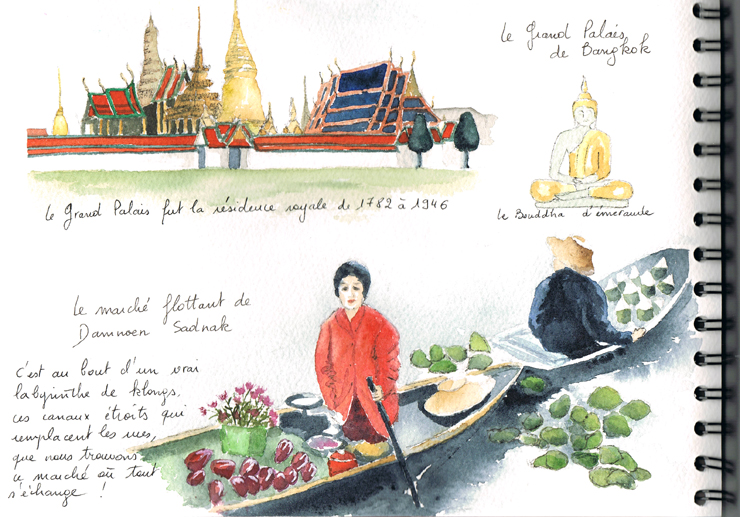 Le Grand Palais
de Bangkok
Le Grand Palais fut la résidence royale de 1782 à 1946
Le Bouddha d'émeraude
Le marché flottant de
Damnoen Sadnak
C'est au bout d'un vrai
labyrinthe de klongs,
ces canaux étroits qui
remplacent les rues,
que nous trouvons
ce marché où tout
s'échange !